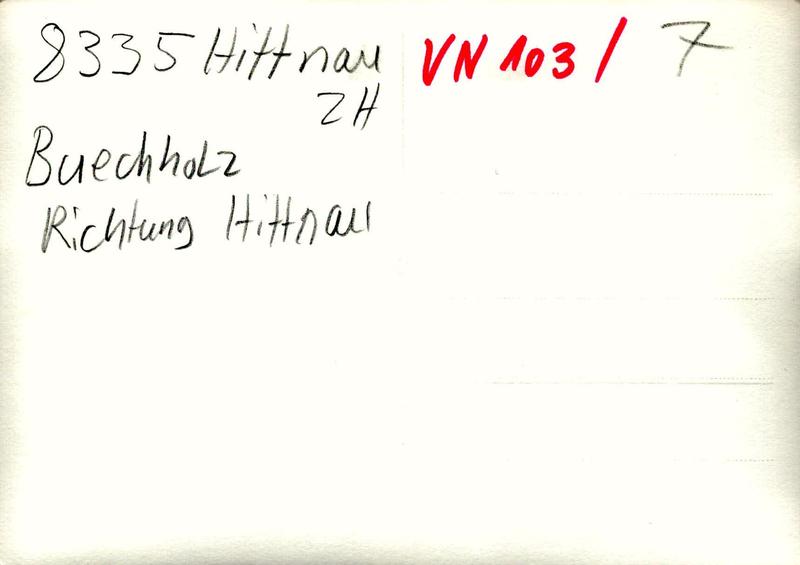 8335 Hittnau
ZH
Buechholz
Richtung Hittnau
VN 103 / 7